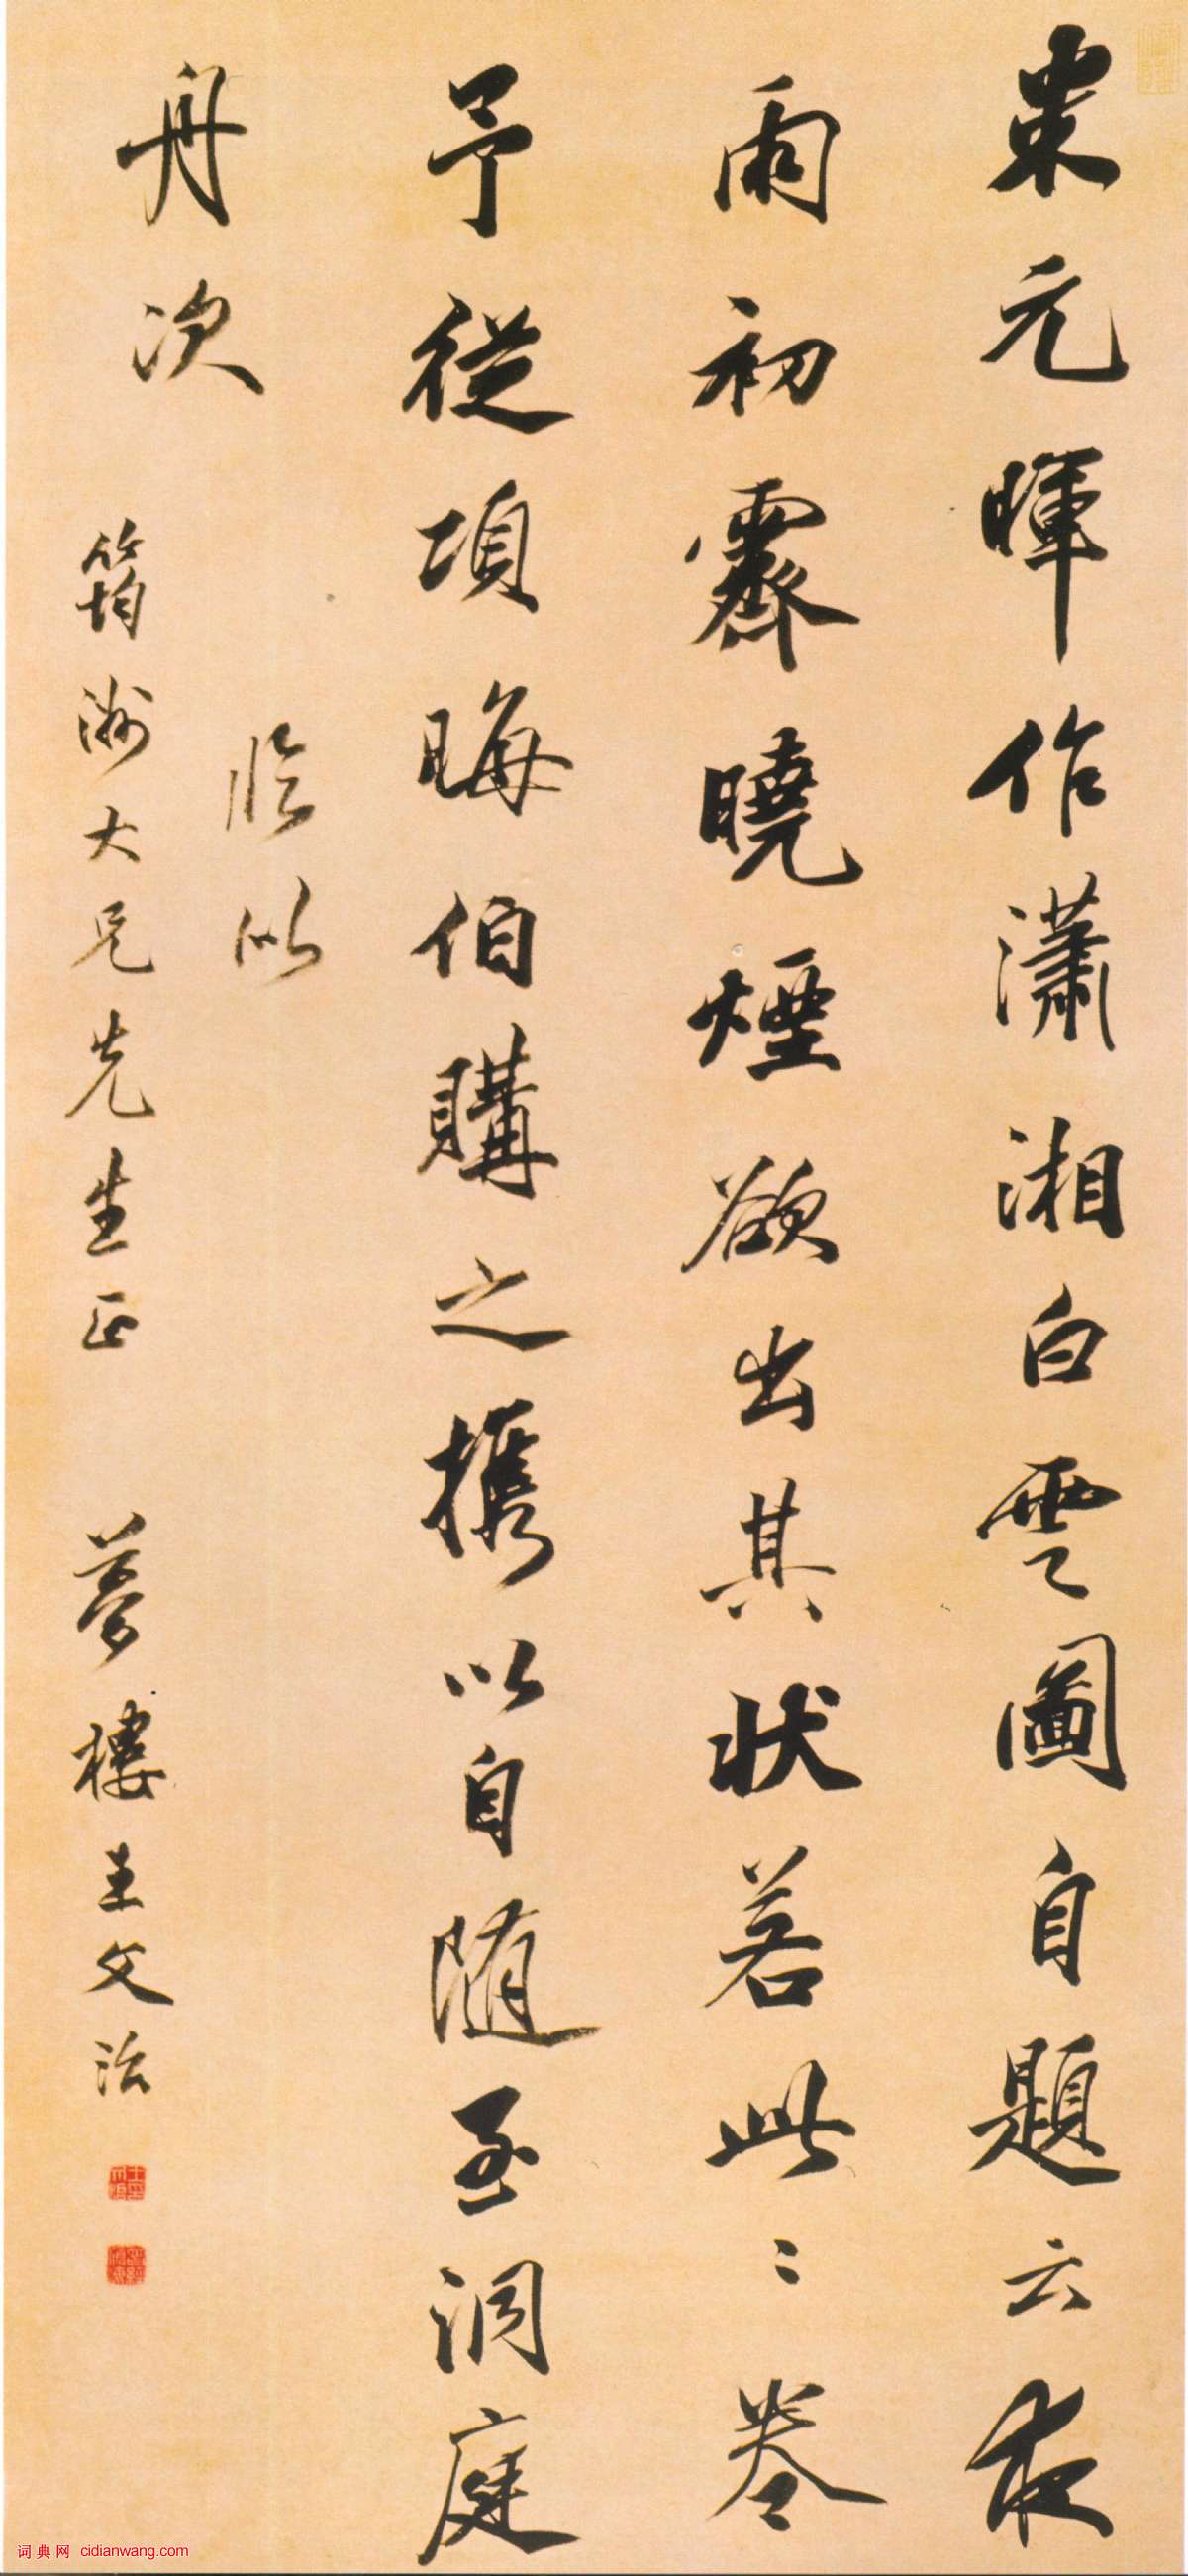 米元暉作瀟湘白雲圖自題云夜
雨初霽曉煙欲出其狀若此〻卷
予從項晦伯購之攜以自隨至洞庭
舟次
臨以
筠洲大兄先生正 夢樓王文治
词典网 cidianwang.com